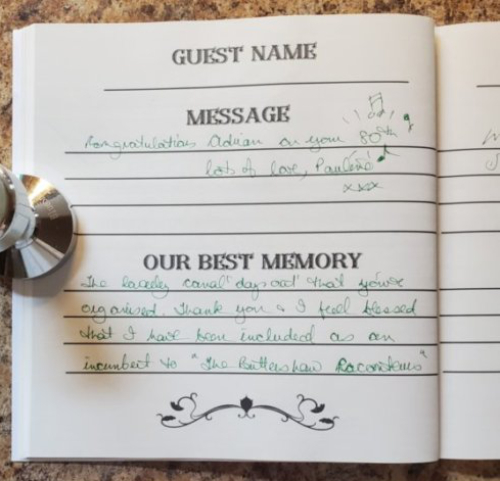 GUEST NAME
MESSAGE
Congratulations Adrian on your 80th
lots of love, Pauline
xxx
OUR BEST MEMORY
The lovely canal 'days out' that you've
organised. Thank you & I feel blessed
that I have been included as an
incumbent to "The